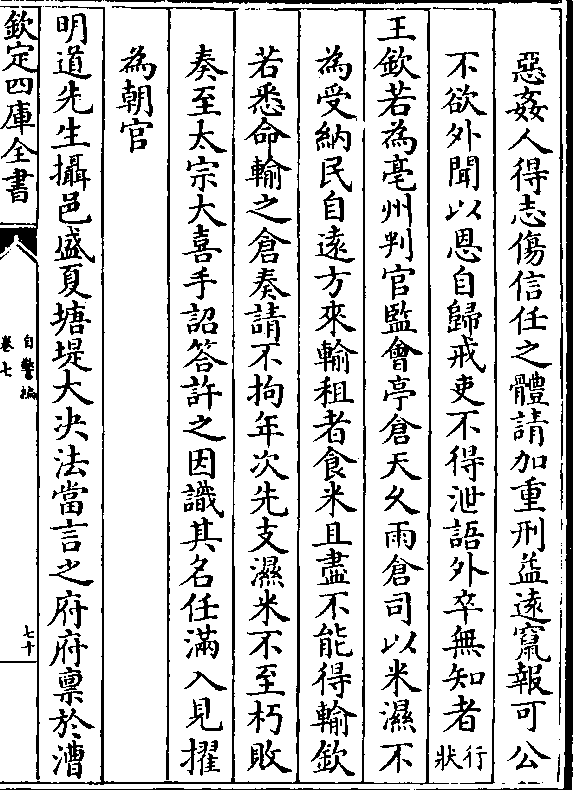 惡姦人得志傷信任之體請加重刑益遠竄報可公
不欲外聞以恩自歸戒吏不得泄語外卒無知者行狀
王欽若為亳州判官監會亭倉天久雨倉司以米濕不
為受納民自遠方來輸租者食米且盡不能得輸欽
若悉命輸之倉奏請不拘年次先支濕米不至朽敗
奏至太宗大喜手詔答許之因識其名任滿入見擢
為朝官
明道先生攝邑盛夏塘堤大决法當言之府府禀於漕
欽定四庫全書
自警編
卷七
七十